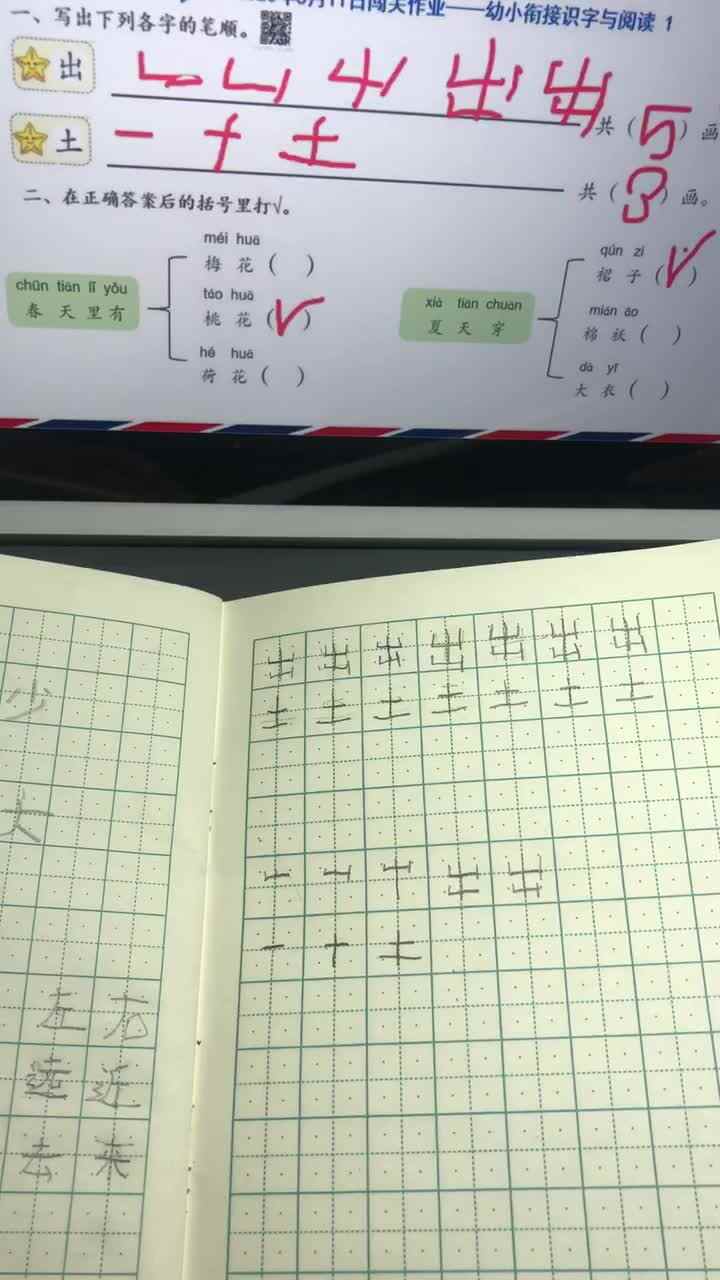 月11日闯关作业——幼小衔接识字与阅读 1
一、写出下列各字的笔顺。
出 共（5）画
土 一 十 土 共（3）画。
二、在正确答案后的括号里打√。
chūn tiān lǐ yǒu
春 天 里 有
méi huā
梅 花（ ）
táo huā
桃 花（√）
hé huā
荷 花（ ）
xià tiān chuān
夏 天 穿
qún zi
裙 子（√）
mián ǎo
棉 袄（ ）
dà yī
大 衣（ ）
少
大
左 右
远 近
去 来
出 出 出 出 出 出 出
土 土 土 土 土 土 土
一 十 土